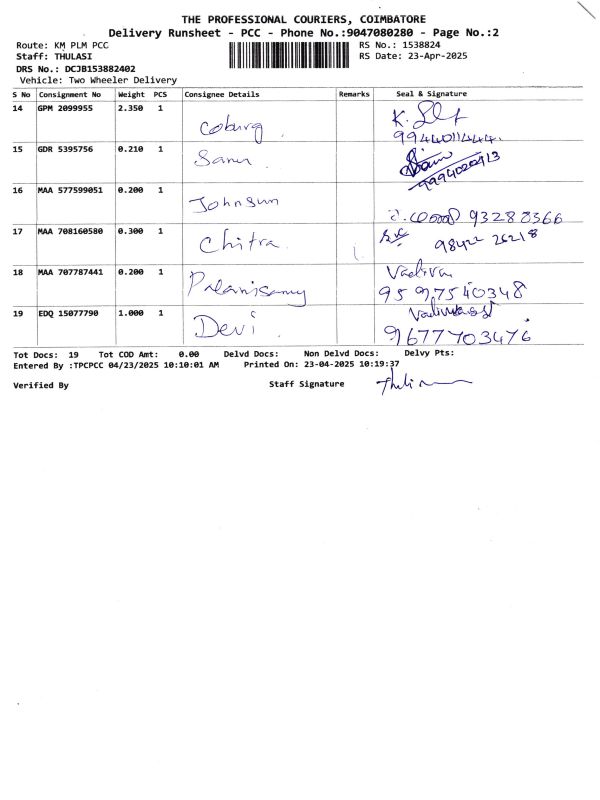 THE PROFESSIONAL COURIERS, COIMBATORE
Delivery Runsheet - PCC - Phone No.:9047080280 - Page No.:2
Route: KM PLM PCC RS No.: 1538824
Staff: THULASI RS Date: 23-Apr-2025
DRS No.: DCJB153882402
Vehicle: Two Wheeler Delivery
S No Consignment No Weight PCS Consignee Details Remarks Seal & Signature
14 GPM 2099955 2.350 1
Coburg
9944011444.
15 GDR 5395756 0.210 1
9994020913
16 MAA 577599051 0.200 1
Johnsun
93288366
17 MAA 708160580 0.300 1
Chitra 98422 26218
18 MAA 707787441 0.200 1
Palanisamy 9597540348
19 EDQ 15077790 1.000 1
Devi 9677703476
Tot Docs: 19 Tot COD Amt: 0.00 Delvd Docs: Non Delvd Docs: Delvy Pts:
Entered By :TPCPCC 04/23/2025 10:10:01 AM Printed On: 23-04-2025 10:19:37
Verified By Staff Signature